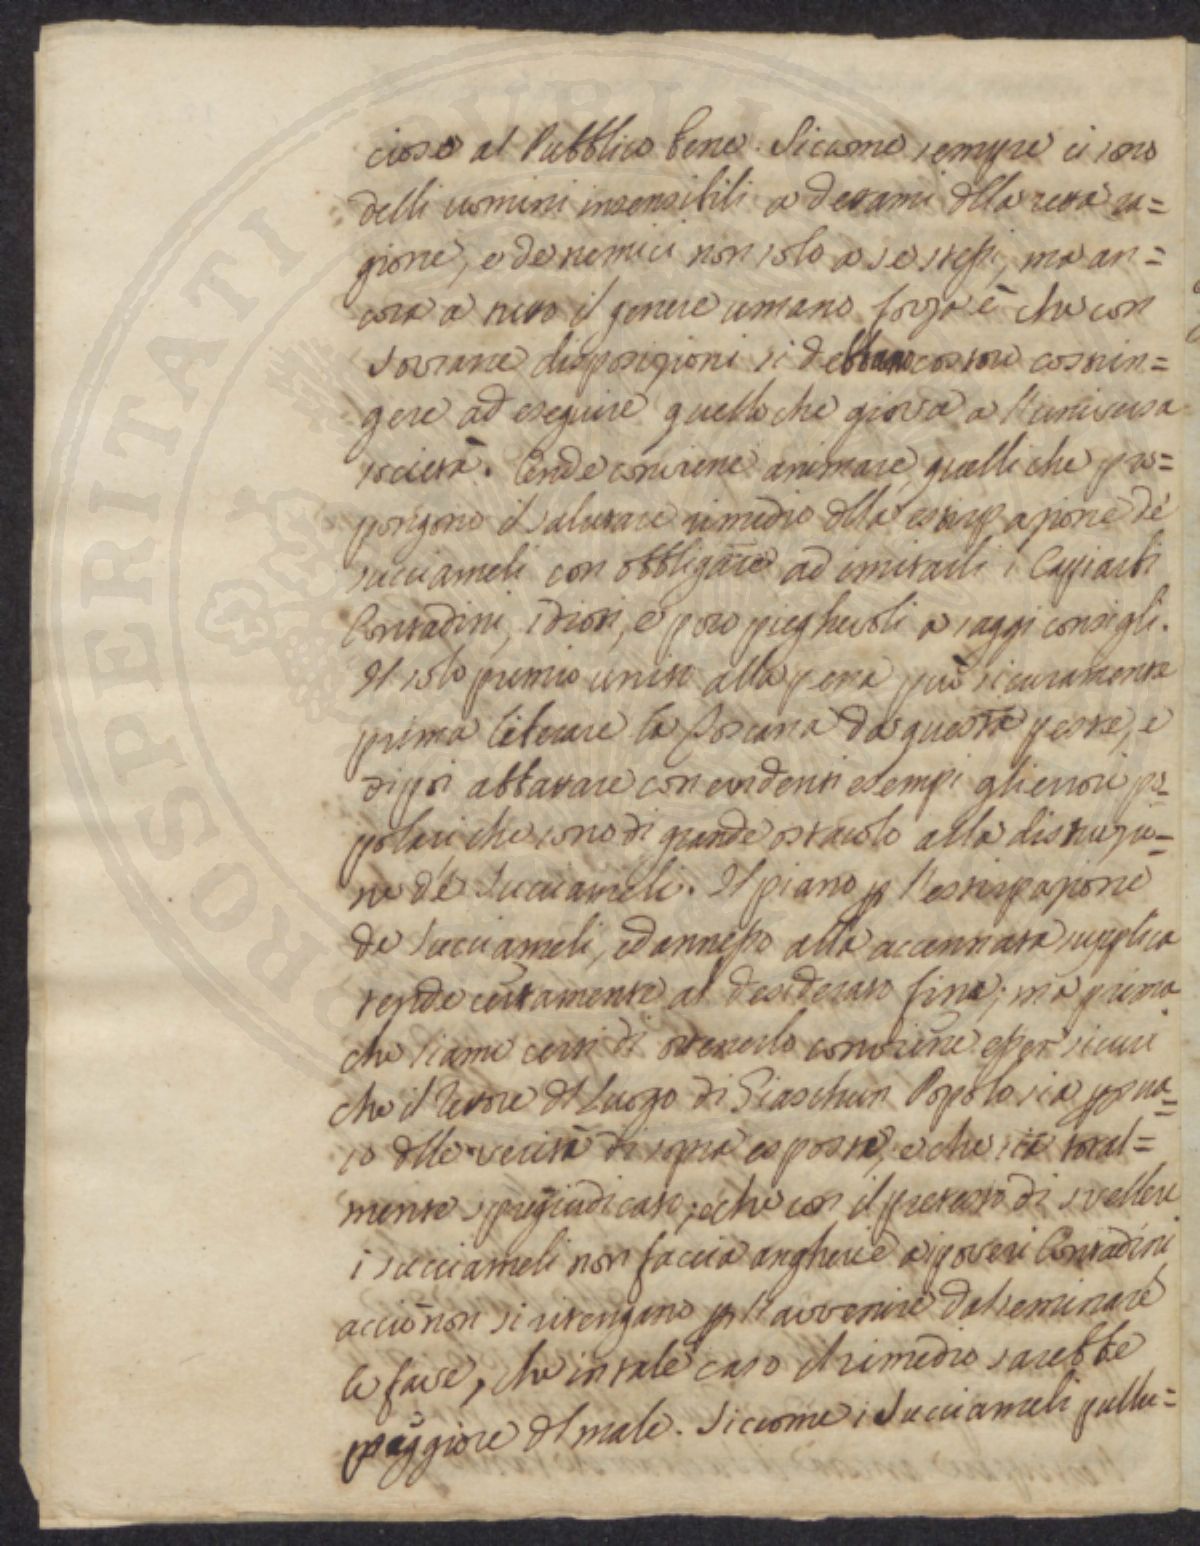 cioso al Pubblico bene. Sicome sempre ci sono
delli uomini insensibili a dettami della retta ra=
gione, e de nemici non solo a se stessi, ma an=
cora a tutto il genere umano, forza è che con
Sovrane disposizioni si debbano costoro costrin=
gere ad eseguire quello che giova a l'universa
società. Onde conviene animare quelli che pro=
pongono il salutare rimedio della estirpazione de'
succiameli con obbligare ad imitarli i Caparbi
Contadini, idioti, e poco pieghevoli a saggi consigli.
Il solo premio unito alla pena può sicuramente
prima liberare la Toscana da questa peste, e
di poi abbattare con evidenti esempi gli errori po=
polari che sono di grande ostacolo alla distruzio=
ne de' Succiameli. Il piano p l'estirpazione
de Succiameli, ed annesso alla accennata supplica
tende certamente al desiderato fine; ma prima
che siamo certi di ottenerlo conviene esser sicuri
che il Rettore del Luogo di Ciaschun Popolo sia persua=
so delle verità di sopra esposte, e che sia total=
mente spregiudicato; e che con il pretesto di svellere
i succiameli non faccia angherie a i poveri Contadini
acciò non si ritengano p l'avvenire dal seminare
le fave, che in tale caso il rimedio sarebbe
peggiore del male. Sicome i Succiameli pullu=
PROSPERITATI PUBLI